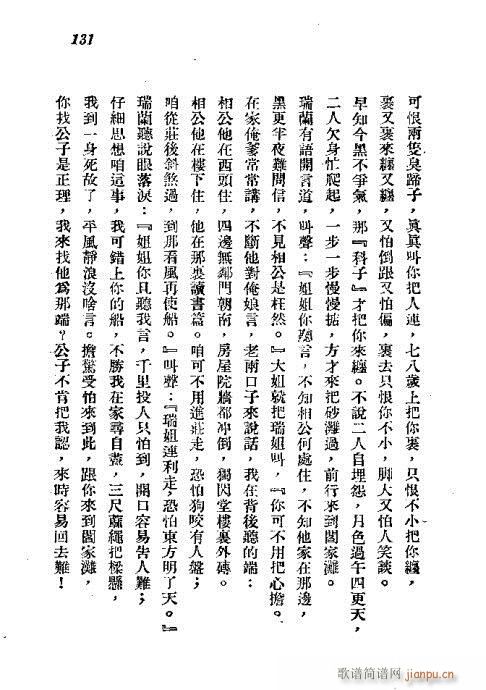 131
可恨兩隻臭蹄子，眞眞叫你把人連，七八歲上把你裹，只恨不小把你纏，
裹又裹來纏又纏，又怕倒跟又怕偏，裏去只恨你不小，脚大又怕人笑談。
早知今黑不爭氣，那『科子』才把你來纏。不說二人自埋怨，月色過午四更天，
二人欠身忙爬起，一步一步慢慢掂，方才來把砂灘過，前行來到閻家灘。
瑞蘭有語開言道，叫聲：『姐姐你聽言，不知相公何處住，不知他家在那邊，
黑更半夜難問信，不見相公是枉然。』大姐就把瑞姐叫，『你可不用把心擔。
在家俺爹常常講，不斷他對俺娘言，老兩口子來說話，我在背後聽的端：
相公他在西頭住，四邊無鄰門朝南，房屋院牆都冲倒，獨閃堂樓裏外磚。
相公他在樓下住，他在那裏讀書篇。咱可不用進莊走，恐怕狗咬有人盤；
咱從莊後斜煞過，到那看風再使船。』叫聲：『瑞姐連利走，恐怕東方明了天。』
瑞蘭聽說眼落淚：『姐姐你且聽我言，千里投人只怕到，開口容易告人難；
仔細思想咱這事，我可錯上你的船，不勝我在家尋自盡，三尺蔴繩把樑懸，
我到一身死故了，平風靜浪沒啥言。擔驚受怕來到此，跟你來到閻家灘，
你找公子是正理，我來找他爲那端？公子不肯把我認，來時容易回去難！
歌谱简谱网
www.jianpu.cn